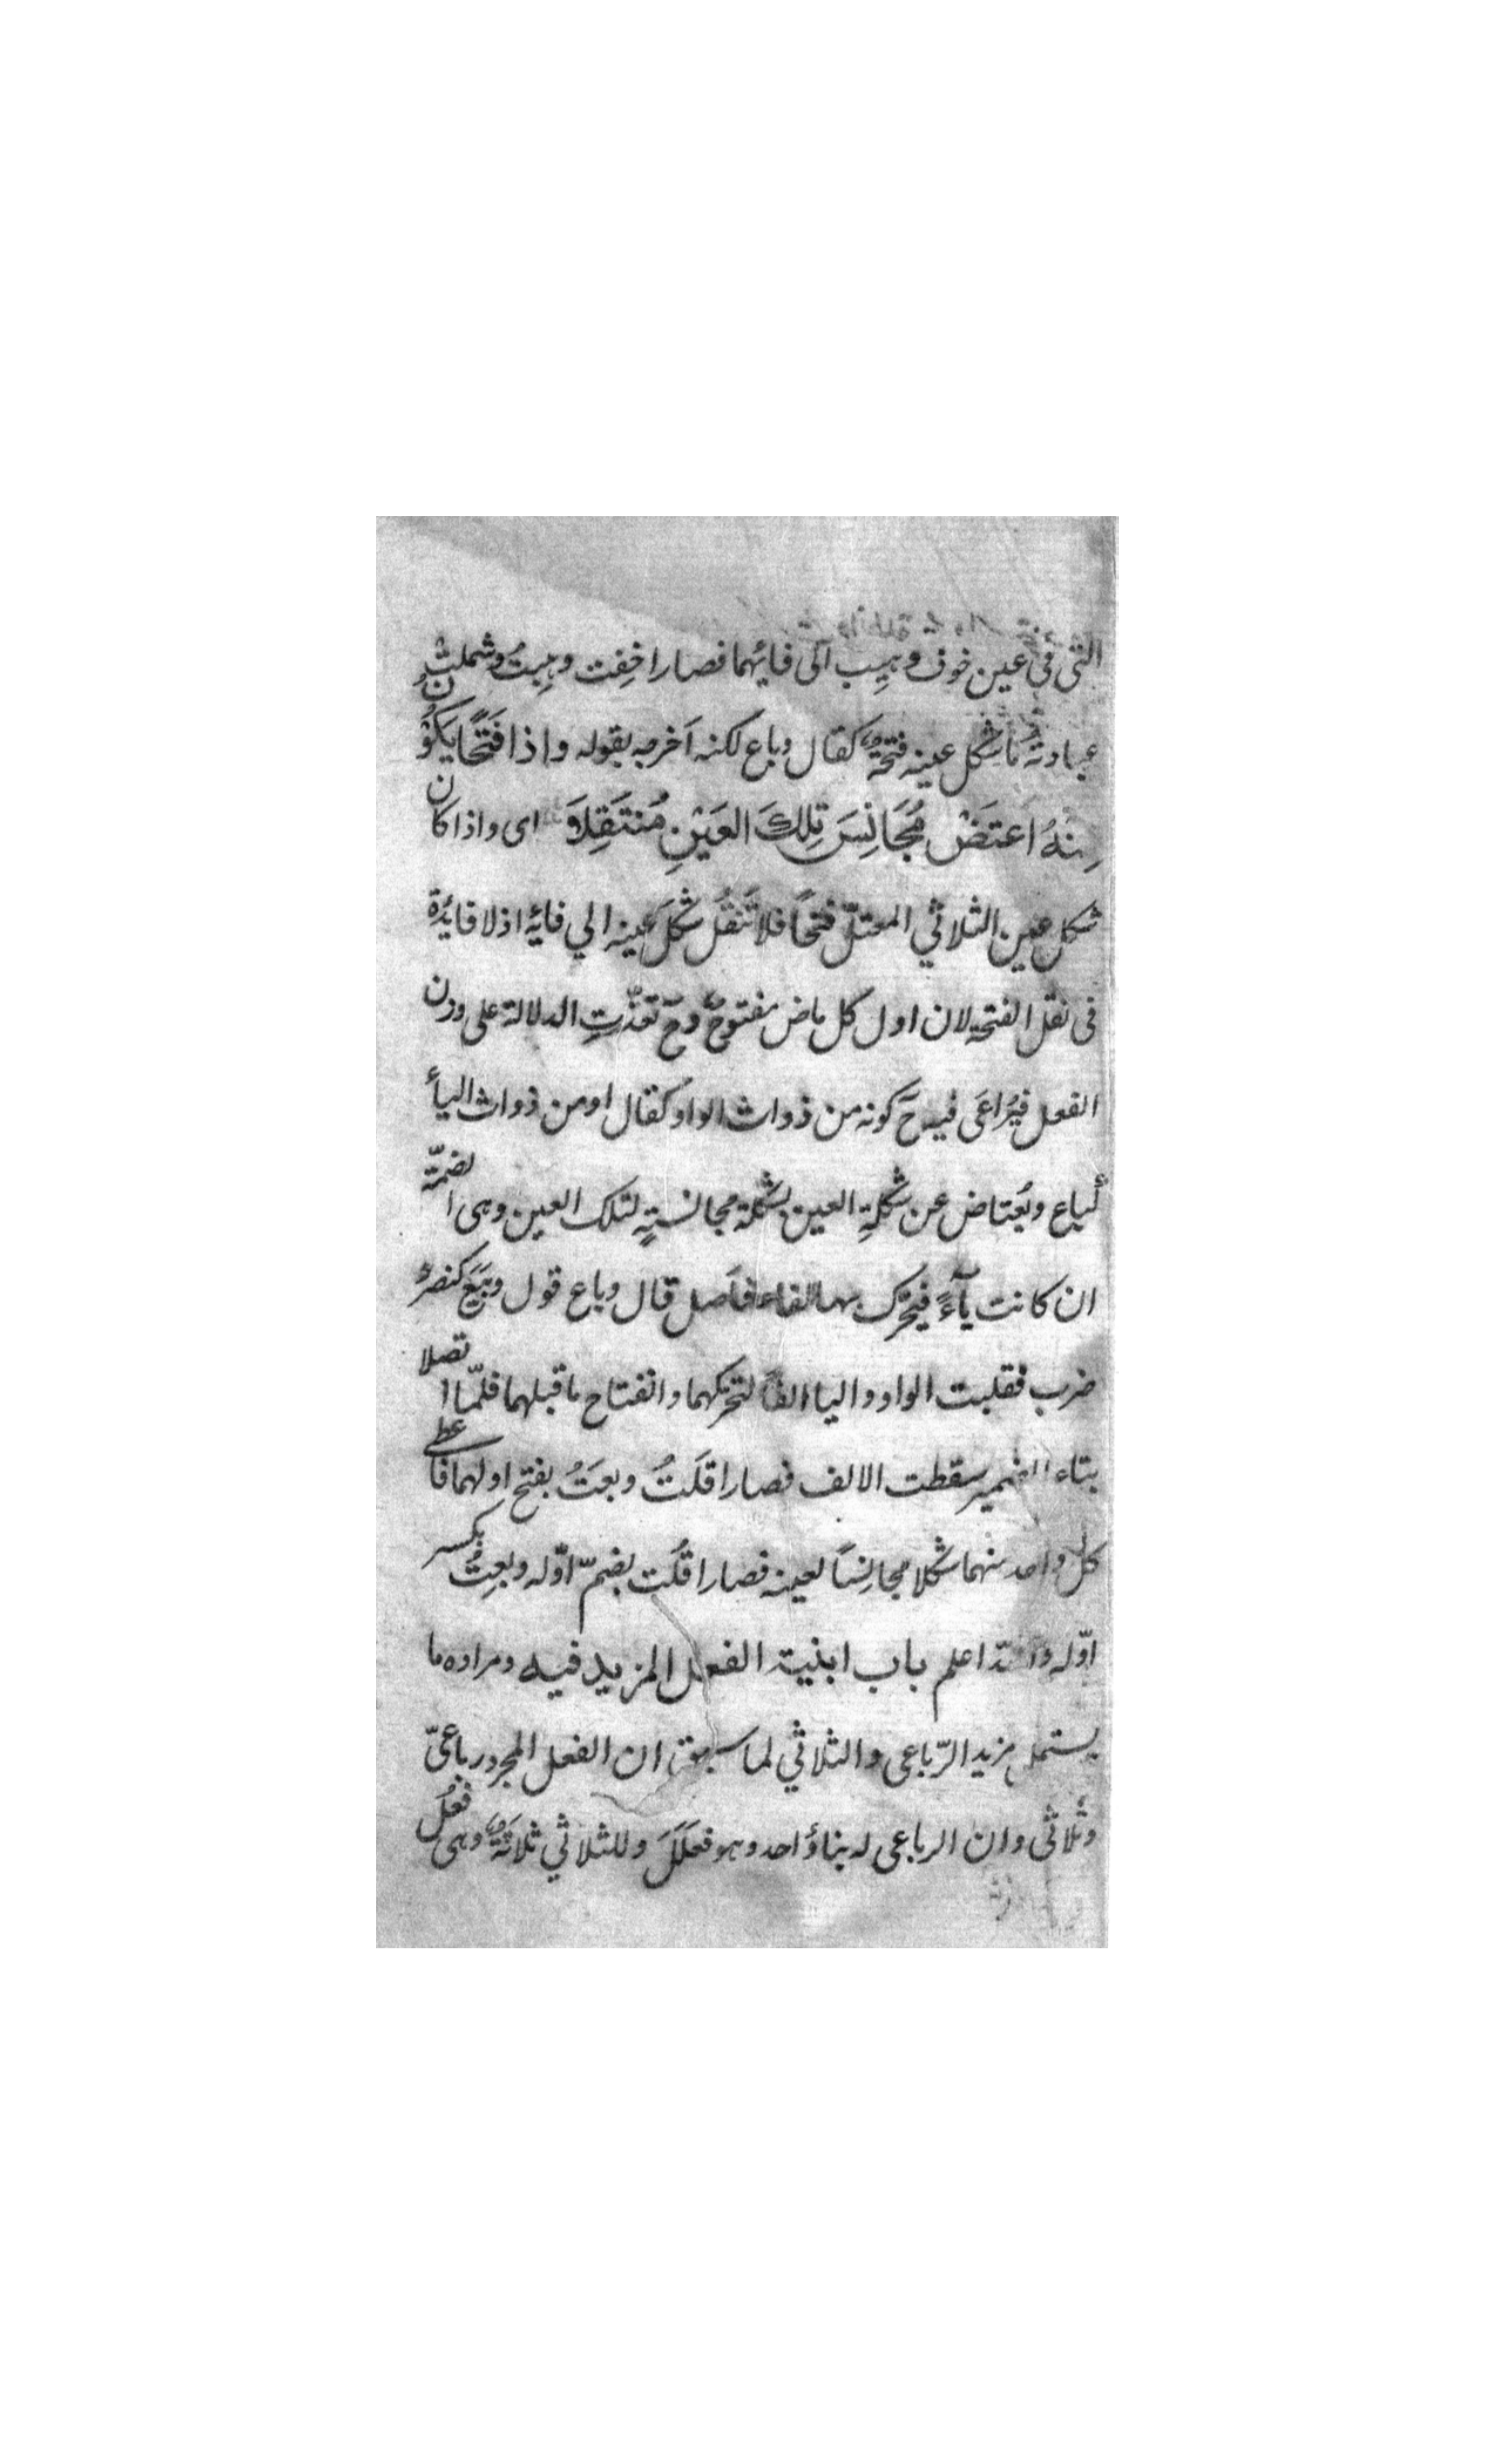 التي في عين خوف وهيب الى فائهما فصارا خِفت وهِبتُ وشملتْ
عبارتهُ ما شكل عينه فتحةٌ كقال وباع لكنه اَخرجه بقوله واذا فَتْحًا يَكُوْنُ
مِنْهُ اعتَضْ مُجَانِسَ تِلكَ العَيْنِ مُنتَقِلاَ اى واذا كان
شكل عين الثلاثي المعتلّ فتحًا فلا تَنقُل شكلَ عينه الي فائه اذ لا فايدة
فى نقل الفتحه لان اول كل ماض مفتوحٌ وحَ تعذّرتِ الدلالة على وزن
الفعل فيُراعَى فيه حَ كونه من ذوات الواو كقال او من ذوات اليأ
كباع ويُعتاض عن شكلةِ العين بشكلة مجانسةٍ لتلك العين وهى الضمّة
ان كانت يآءً فيحّرك بها الفاء فأصل قال وباع قول وبَيَعَ كنصر و
ضرب فقلبت الواو واليا الفًا لتحرّكهما وانفتاح ما قبلهما فلمّا اتصلا
بتاء الضمير سقطت الالف فصارا قَلَتُ وبعَتُ بفتح اولهما فأعطى
كل واحد منهما شكلا مجانِسًا لعينه فصارا قُلت بضمّ اوّله وبعِتُ بكسر
اوّله والله اعلم باب ابنية الفعل المزيد فيه ومراده ما
يستمل مزيد الرّباعى والثلاثي لما سبق ان الفعل المجرد رباعىّ
وثلاثى وان الرباعى له بناؤ احد وهو فعلَلَ وللثلاثي ثلاثةٌ وهى فعُل